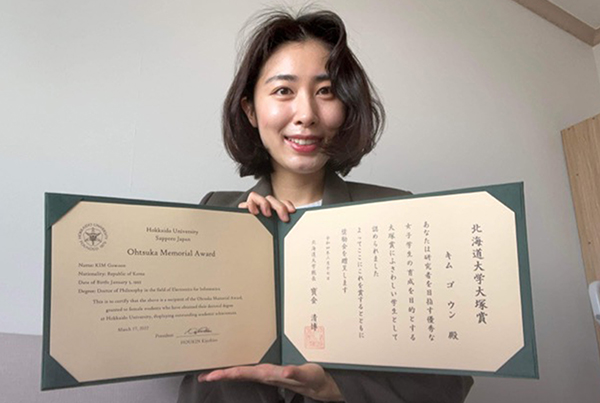 Hokkaido University
Sapporo Japan
Ohtsuka Memorial Award
Name: KIM
Nationality: Republic of Korea
Date of Birth: January
Degree: Doctor of Philosophy in the field of Electronics for Informatics
This is to certify that the above is a recipient of the Ohtsuka Memorial Award,
granted to female students who have obtained their doctoral degree
at Hokkaido University, displaying outstanding academic achievement.
March
President
HOUKIN Kiyohiro
北海道大学大塚賞
キム ゴ ウン 殿
あなたは研究者を目指す優秀な
女子学生の育成を目的とする
大塚賞にふさわしい学生として
認められました
よってここにこれを賞するとともに
奨励金を贈呈します
北海道大学総長 寳金 清博